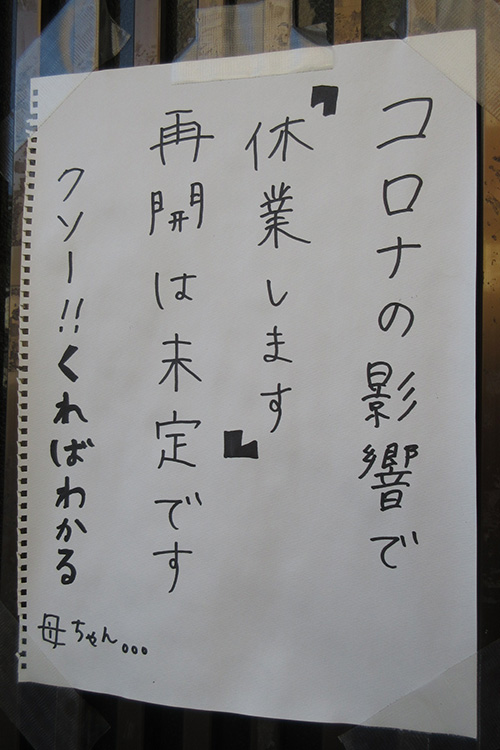 コロナの影響で
『休業します』
再開は未定です
クソー!!くればわかる
母ちゃん...